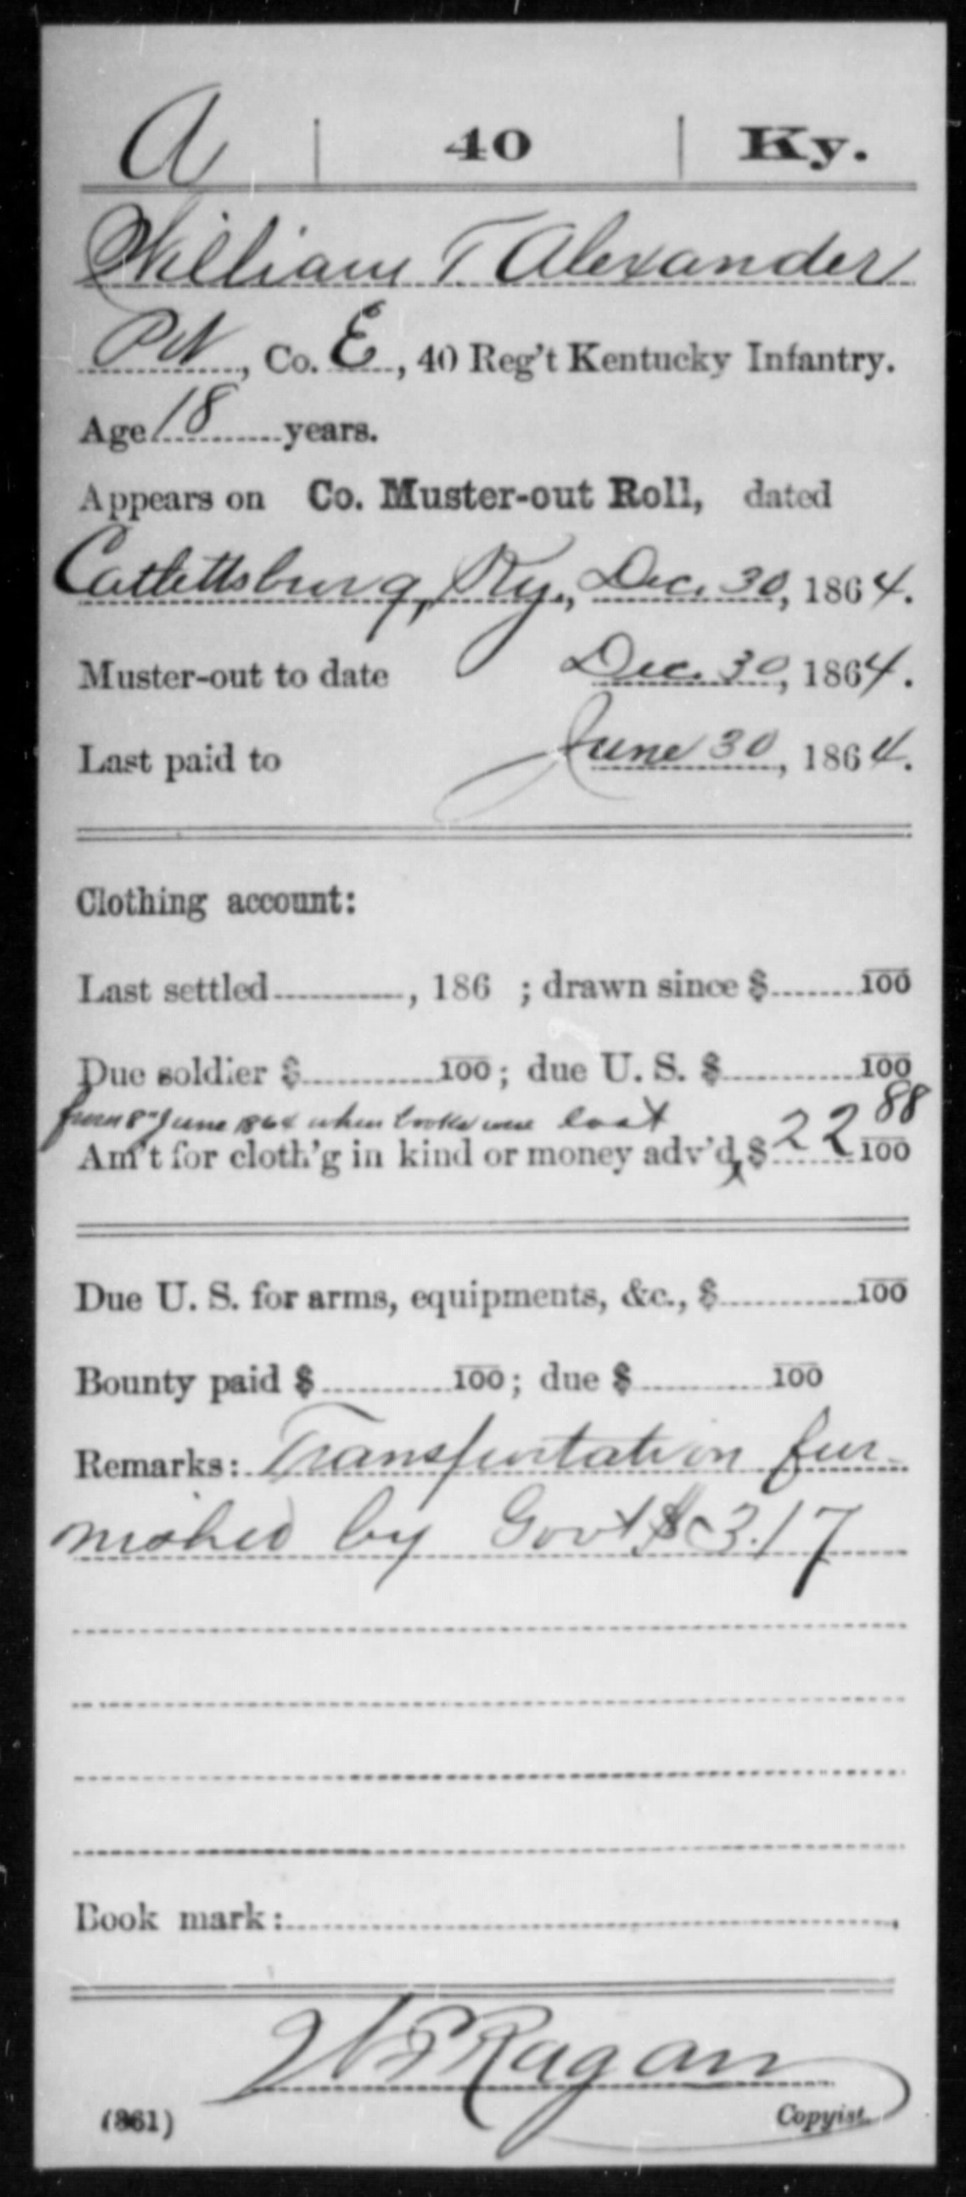 A | 40 | Ky.
William T. Alexander
Pvt, Co. E, 40 Reg't Kentucky Infantry.
Age 18 years.
Appears on Co. Muster-out Roll, dated
Catlettsburg, Ky., Dec. 30, 1864.
Muster-out to date Dec. 30, 1864.
Last paid to June 30, 1864.
Clothing account:
Last settled, 186 ; drawn since $ 100
Due soldier $ 100; due U. S. $ 100
from 8" June 1864 when books were lost
Am't for cloth'g in kind or money adv'd, $ 22 88/100
Due U. S. for arms, equipments, &c., $ 100
Bounty paid $ 100; due $ 100
Remarks: Transportation fur-
nished by Govt $3.17
Book mark:
Ragan
(861) Copyist.